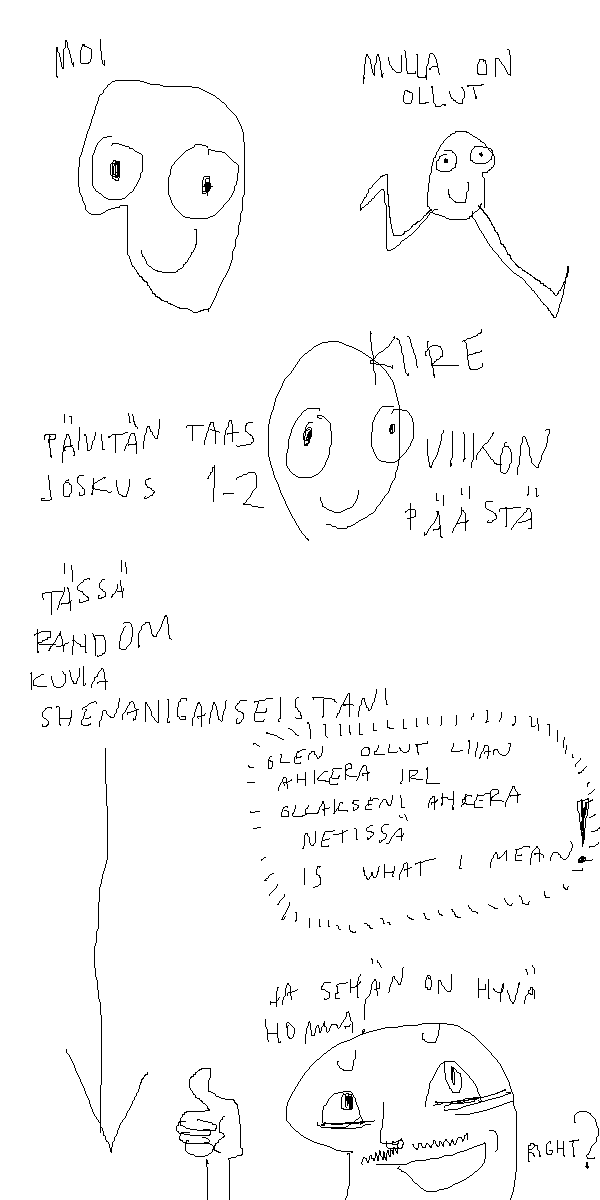 MOI
MULLA ON
OLLUT
KIIRE
PÄIVITÄN TAAS
JOSKUS 1-2
VIIKON
PÄÄSTÄ
TÄSSÄ
RANDOM
KUVIA
SHENANIGANSEISTANI
OLEN OLLUT LIIAN
AHKERA IRL
OLLAKSENI AHKERA
NETISSÄ
IS WHAT I MEAN!
JA SEHÄN ON HYVÄ
HOMMA!
RIGHT?